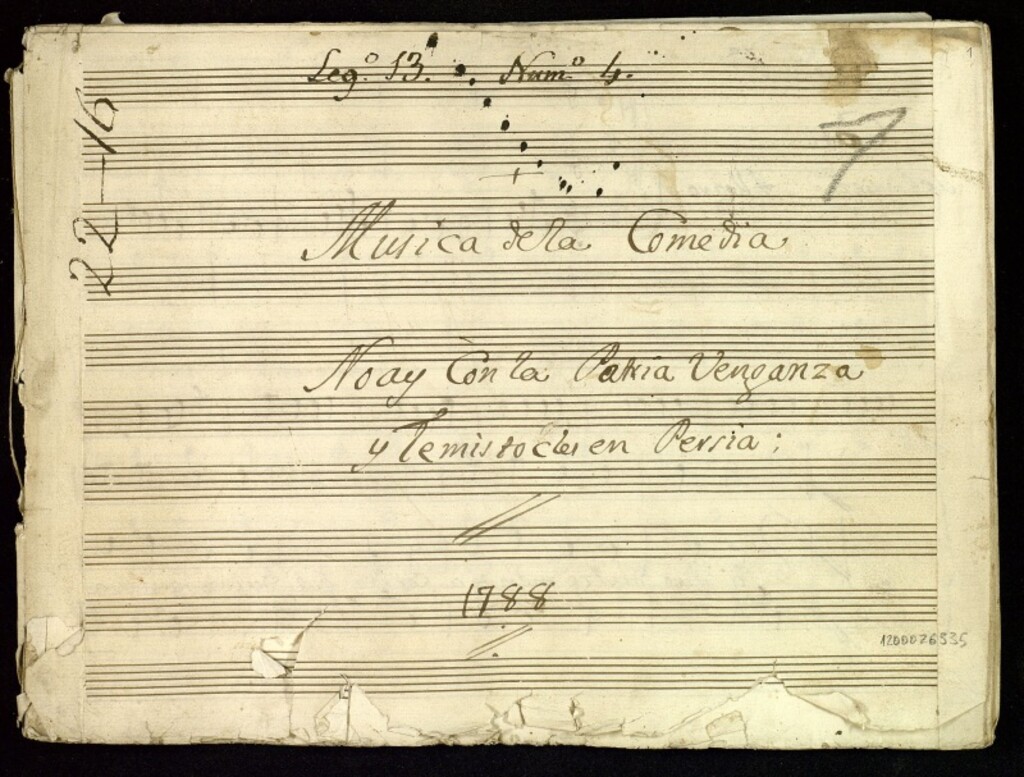 Leg.º 13. Num.º 4.
22-16
7
1
Musica de la Comedia
Noay Con la Patria Venganza
y Temistocles en Persia;
1788
1200076535